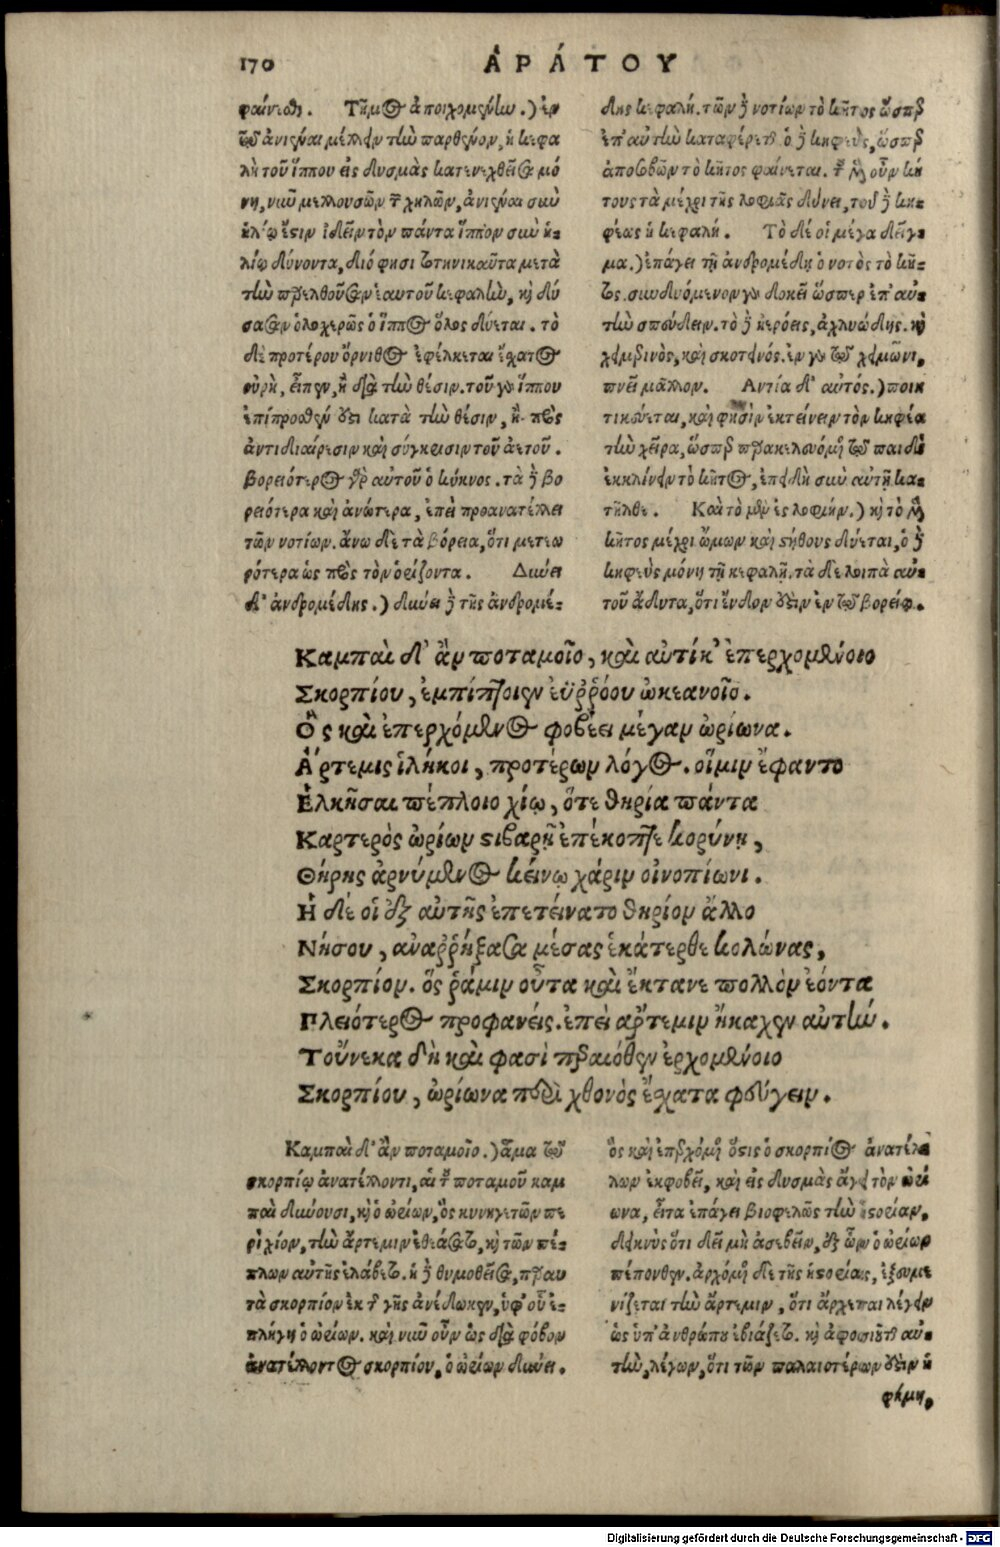 170
ΑΡΑΤΟΥ
φαίνεσθαι. Τῆμος ἀποιχομένην.) ἐν
τῷ ἀνιέναι μέλλειν τὴν παρθένον, ἡ κεφα
λὴ τοῦ ἵππου εἰς δυσμὰς κατενεχθεῖσα μό
νη, νῦν μελλουσῶν τῶν χηλῶν, ἀνιέναι σὺν
ἡλίῳ ἔστιν ἰδεῖν τὸν πάντα ἵππον σὺν ἡ-
λίῳ δύνοντα, διό φησι τὸ τηνικαῦτα μετὰ
τὴν προελθοῦσαν ἑαυτοῦ κεφαλὴν, καὶ δύ
σασαν ὁλοχερῶς ὁ ἵππος ὅλος δύεται. τὸ
δὲ προτέρου ὄρνιθος ἐφέλκεται ἔχατος
οὐρὴ, εἶπεν, ἢ διὰ τὴν θέσιν. τοῦ γὰρ ἵππου
ἐπίπροσθέν ἐστι κατὰ τὴν θέσιν, ἢ πρὸς
ἀντιδιαίρεσιν καὶ σύγκρισιν τοῦ ἀετοῦ.
βορειότερος γὰρ αὐτοῦ ὁ κύκνος. τὰ δὲ βο
ρειότερα καὶ ἀνώτερα, ἐπεὶ προανατέλλει
τῶν νοτίων. ἄνω δὲ τὰ βόρεια, ὅτι μετεω
ρότερα ὡς πρὸς τὸν ὁρίζοντα. Δύνει
δ' ἀνδρομέδης.) δύνει δὲ τῆς ἀνδρομέ-
δης κεφαλή. τῶν δὲ νοτίων τὸ κῆτος ὥσπερ
ἐπ' αὐτὴν καταφέρεται ὁ δὲ κηφεὺς, ὥσπερ
ἀποσοβῶν τὸ κῆτος φαίνεται. τοῦ μὲν οὖν κή
τους τὰ μέχρι τῆς λοφιᾶς δύνει, τοῦ δὲ κη-
φέως ἡ κεφαλή. Τὸ δέ οἱ μέγα δεῖγ-
μα.) ἐπάγει τῇ ἀνδρομέδῃ ὁ νότος τὸ κῆ-
τος. συνδυόμενον γὰρ δοκεῖ ὥσπερ ἐπ' αὐ-
τὴν σπεύδειν. τὸ δὲ ἠερόεις, ἀχλυώδης. καὶ
χειμερινὸς, καὶ σκοτεινός. ἐν γὰρ τῷ χειμῶνι,
πνεῖ μᾶλλον. Αντία δ' αὐτός.) ποιη
τικεύεται, καὶ φησὶν ἐκτείνειν τὸν κηφέα
τὴν χεῖρα, ὥσπερ παρακελευόμενον τῇ παιδὶ
ἐκκλίνειν τὸ κῆτος, ἐπειδὴ σὺν αὐτῇ κα-
τῆλθε. Καὶ τὸ μὲν ἐς λοφιήν.) καὶ τὸ μὲν
κῆτος μέχρι ὤμων καὶ στήθους δύεται, ὁ δὲ
κηφεὺς μόνῃ τῇ κεφαλῇ. τὰ δὲ λοιπὰ αὐ-
τοῦ ἄδυτα, ὅτι ἔνδον ἐστὶν ἐν τῷ βορείῳ.
Καμπαὶ δ' ἂν ποταμοῖο, καὶ αὐτίκ' ἐπερχομένοιο
Σκορπίου, ἐμπίπτοιεν ἐϋῤῥόου ὠκεανοῖο.
Ὃς καὶ ἐπερχόμενος φοβέει μέγαν ὠρίωνα.
Ἄρτεμις ἱλήκοι, προτέρων λόγος. οἵμιν ἔφαντο
Ἑλκῆσαι πέπλοιο χίῳ, ὅτε θηρία πάντα
Καρτερὸς ὠρίων στιβαρῇ ἐπέκοπτε κορύνῃ,
Θήρης ἀρνύμενος κείνῳ χάριν οἰνοπίωνι.
Ἡ δέ οἱ ἐξ αὐτῆς ἐπετείνατο θηρίον ἄλλο
Νήσου, ἀναῤῥήξασα μέσας ἑκάτερθε κολώνας,
Σκορπίον. ὅς ῥάμιν οὖτα καὶ ἔκτανε πολλὸν ἐόντα
Πλειότερος προφανείς. ἐπεὶ ἄρτεμιν ἤκαχεν αὐτὴν.
Τοὔνεκα δὴ καὶ φασὶ περαιόθεν ἐρχομένοιο
Σκορπίου, ὠρίωνα περὶ χθονὸς ἔχατα φεύγειν.
Καμπαὶ δ' ἂν ποταμοῖο.) ἅμα τῷ
σκορπίῳ ἀνατέλλοντι, αἱ τοῦ ποταμοῦ καμ
παὶ δύνουσι, καὶ ὁ ὠρίων, ὃς κυνηγετῶν πε
ρὶ χίον, τὴν ἄρτεμιν ἐθιάσατο, καὶ τῶν πέ-
πλων αὐτῆς ἐλάβετο. ἡ δὲ θυμωθεῖσα, παραυ
τὰ σκορπίον ἐκ τῆς γῆς ἀνέδωκεν, ὑφ' οὗ ἐ-
πλήγη ὁ ὠρίων. καὶ νῦν οὖν ὡς διὰ φόβον
ἀνατέλλοντος σκορπίου, ὁ ὠρίων δύνει.
ὃς καὶ ἐπερχόμενος ὅστις ὁ σκορπίος ἀνατέλ-
λων ἐκφοβεῖ, καὶ εἰς δυσμὰς ἄγει τὸν ὠρί
ωνα, εἶτα ἐπάγει βιοφελῶς τὴν ἱστορίαν,
δεικνὺς ὅτι δεῖ μὴ ἀσεβεῖν, ἐξ ὧν ὁ ὠρίων
πέπονθεν, ἀρχόμενος δὲ τῆς ἱστορίας, ἐξευμε
νίζεται τὴν ἄρτεμιν, ὅτι ἄρχεται λέγειν
ὡς ὑπ' ἀνθρώπου ἐβιάζετο. καὶ ἀφοσιοῦται αὐ-
τὴν, λέγων, ὅτι τῶν παλαιοτέρων ἐστὶν ἡ
φήμη,
Digitalisierung gefördert durch die Deutsche Forschungsgemeinschaft - DFG